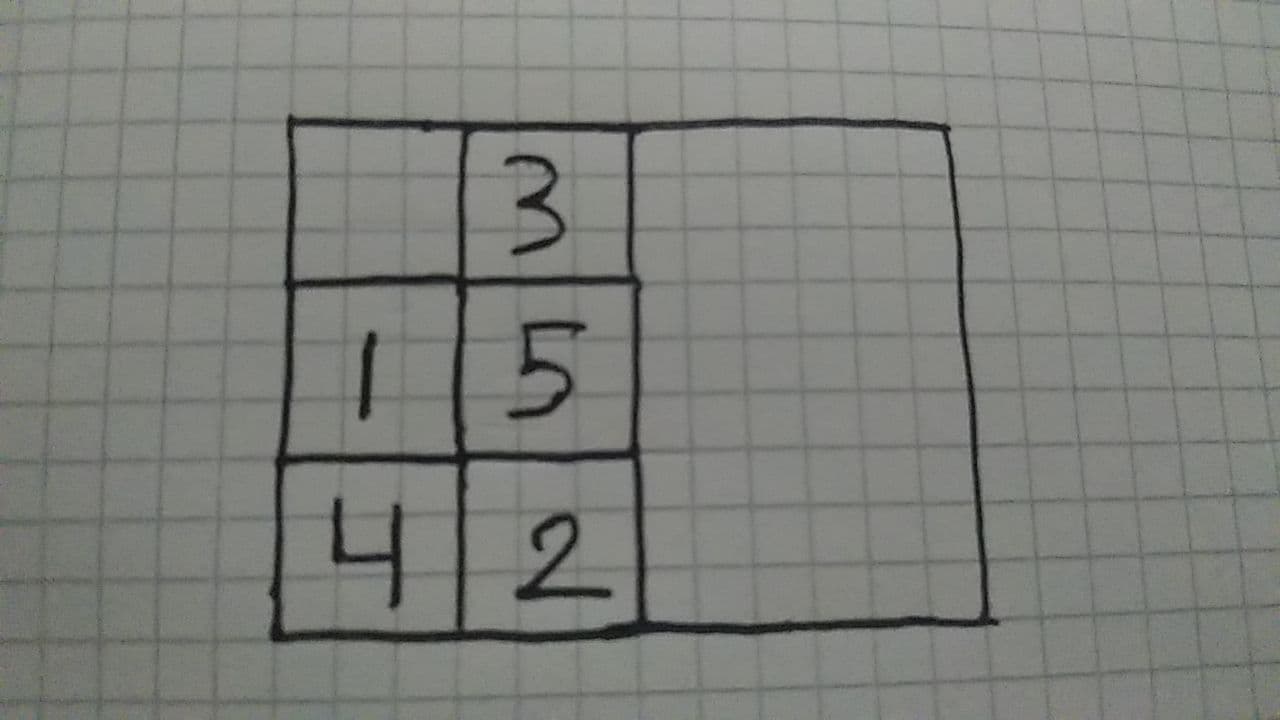 3
1 5
4 2